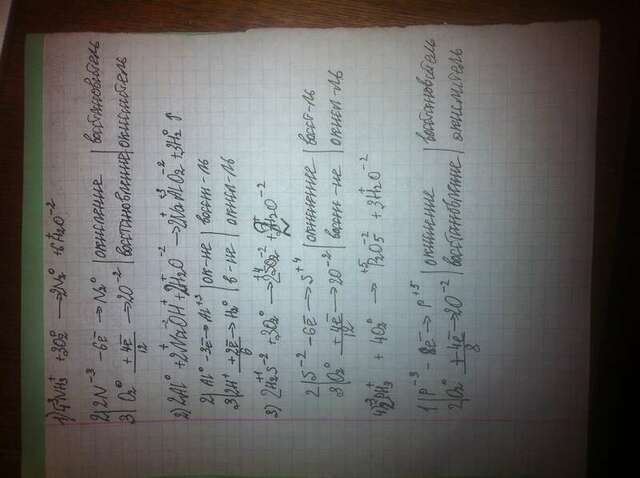 1) 4N⁻³H₃⁺ + 3O₂⁰ → 2N₂⁰ + 6H₂⁺O⁻²
2|2N⁻³ - 6ē → N₂⁰ | окисление | восстановитель
3|O₂⁰ + 4ē → 2O⁻² | восстановление | окислитель
12
2) 2Al⁰ + 2Na⁺O⁻²H⁺ + 2H₂⁺O⁻² → 2Na⁺Al⁺³O₂⁻² + 3H₂⁰↑
2|Al⁰ - 3ē → Al⁺³ | ок-ие | восст-ль
3|2H⁺ + 2ē → H₂⁰ | в-ие | окисл-ль
6
3) 2H₂⁺S⁻² + 3O₂⁰ → 2S⁺⁴O₂⁻² + 2H₂⁺O⁻²
2|S⁻² - 6ē → S⁺⁴ | окисление | восст-ль
3|O₂⁰ + 4ē → 2O⁻² | восст-ие | окисл-ль
12
4) 2P⁻³H₃⁺ + 4O₂⁰ → P₂⁺⁵O₅⁻² + 3H₂⁺O⁻²
1|P⁻³ - 8ē → P⁺⁵ | окисление | восстановитель
2|O₂⁰ + 4ē → 2O⁻² | восстановление | окислитель
8